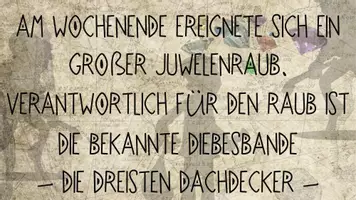 AM WOCHENENDE EREIGNETE SICH EIN
GROßER JUWELENRAUB.
VERANTWORTLICH FÜR DEN RAUB IST
DIE BEKANNTE DIEBESBANDE
– DIE DREISTEN DACHDECKER –